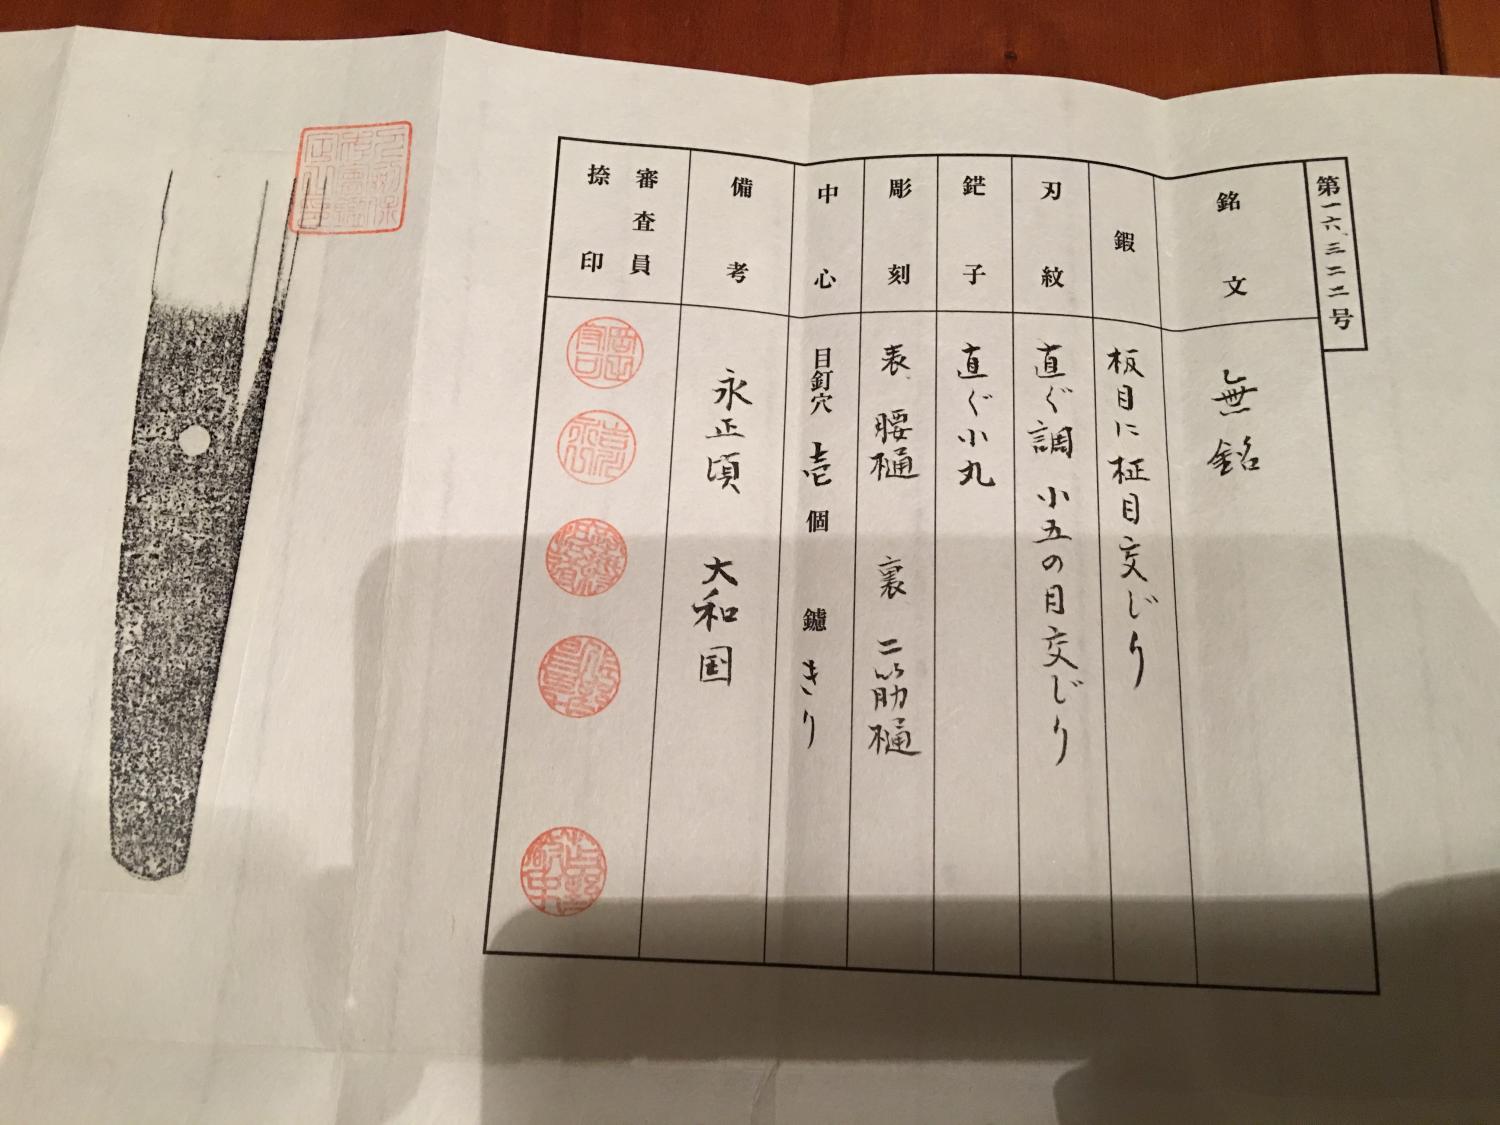 第一六、三二二号
銘文
無銘
鍜
板目に柾目交じり
刃紋
直ぐ調 小五の目交じり
鋩子
直ぐ小丸
彫刻
表 腰樋 裏 二筋樋
中心
目釘穴 壱個 鑢 きり
備考
永正頃 大和国
審査員
捺印